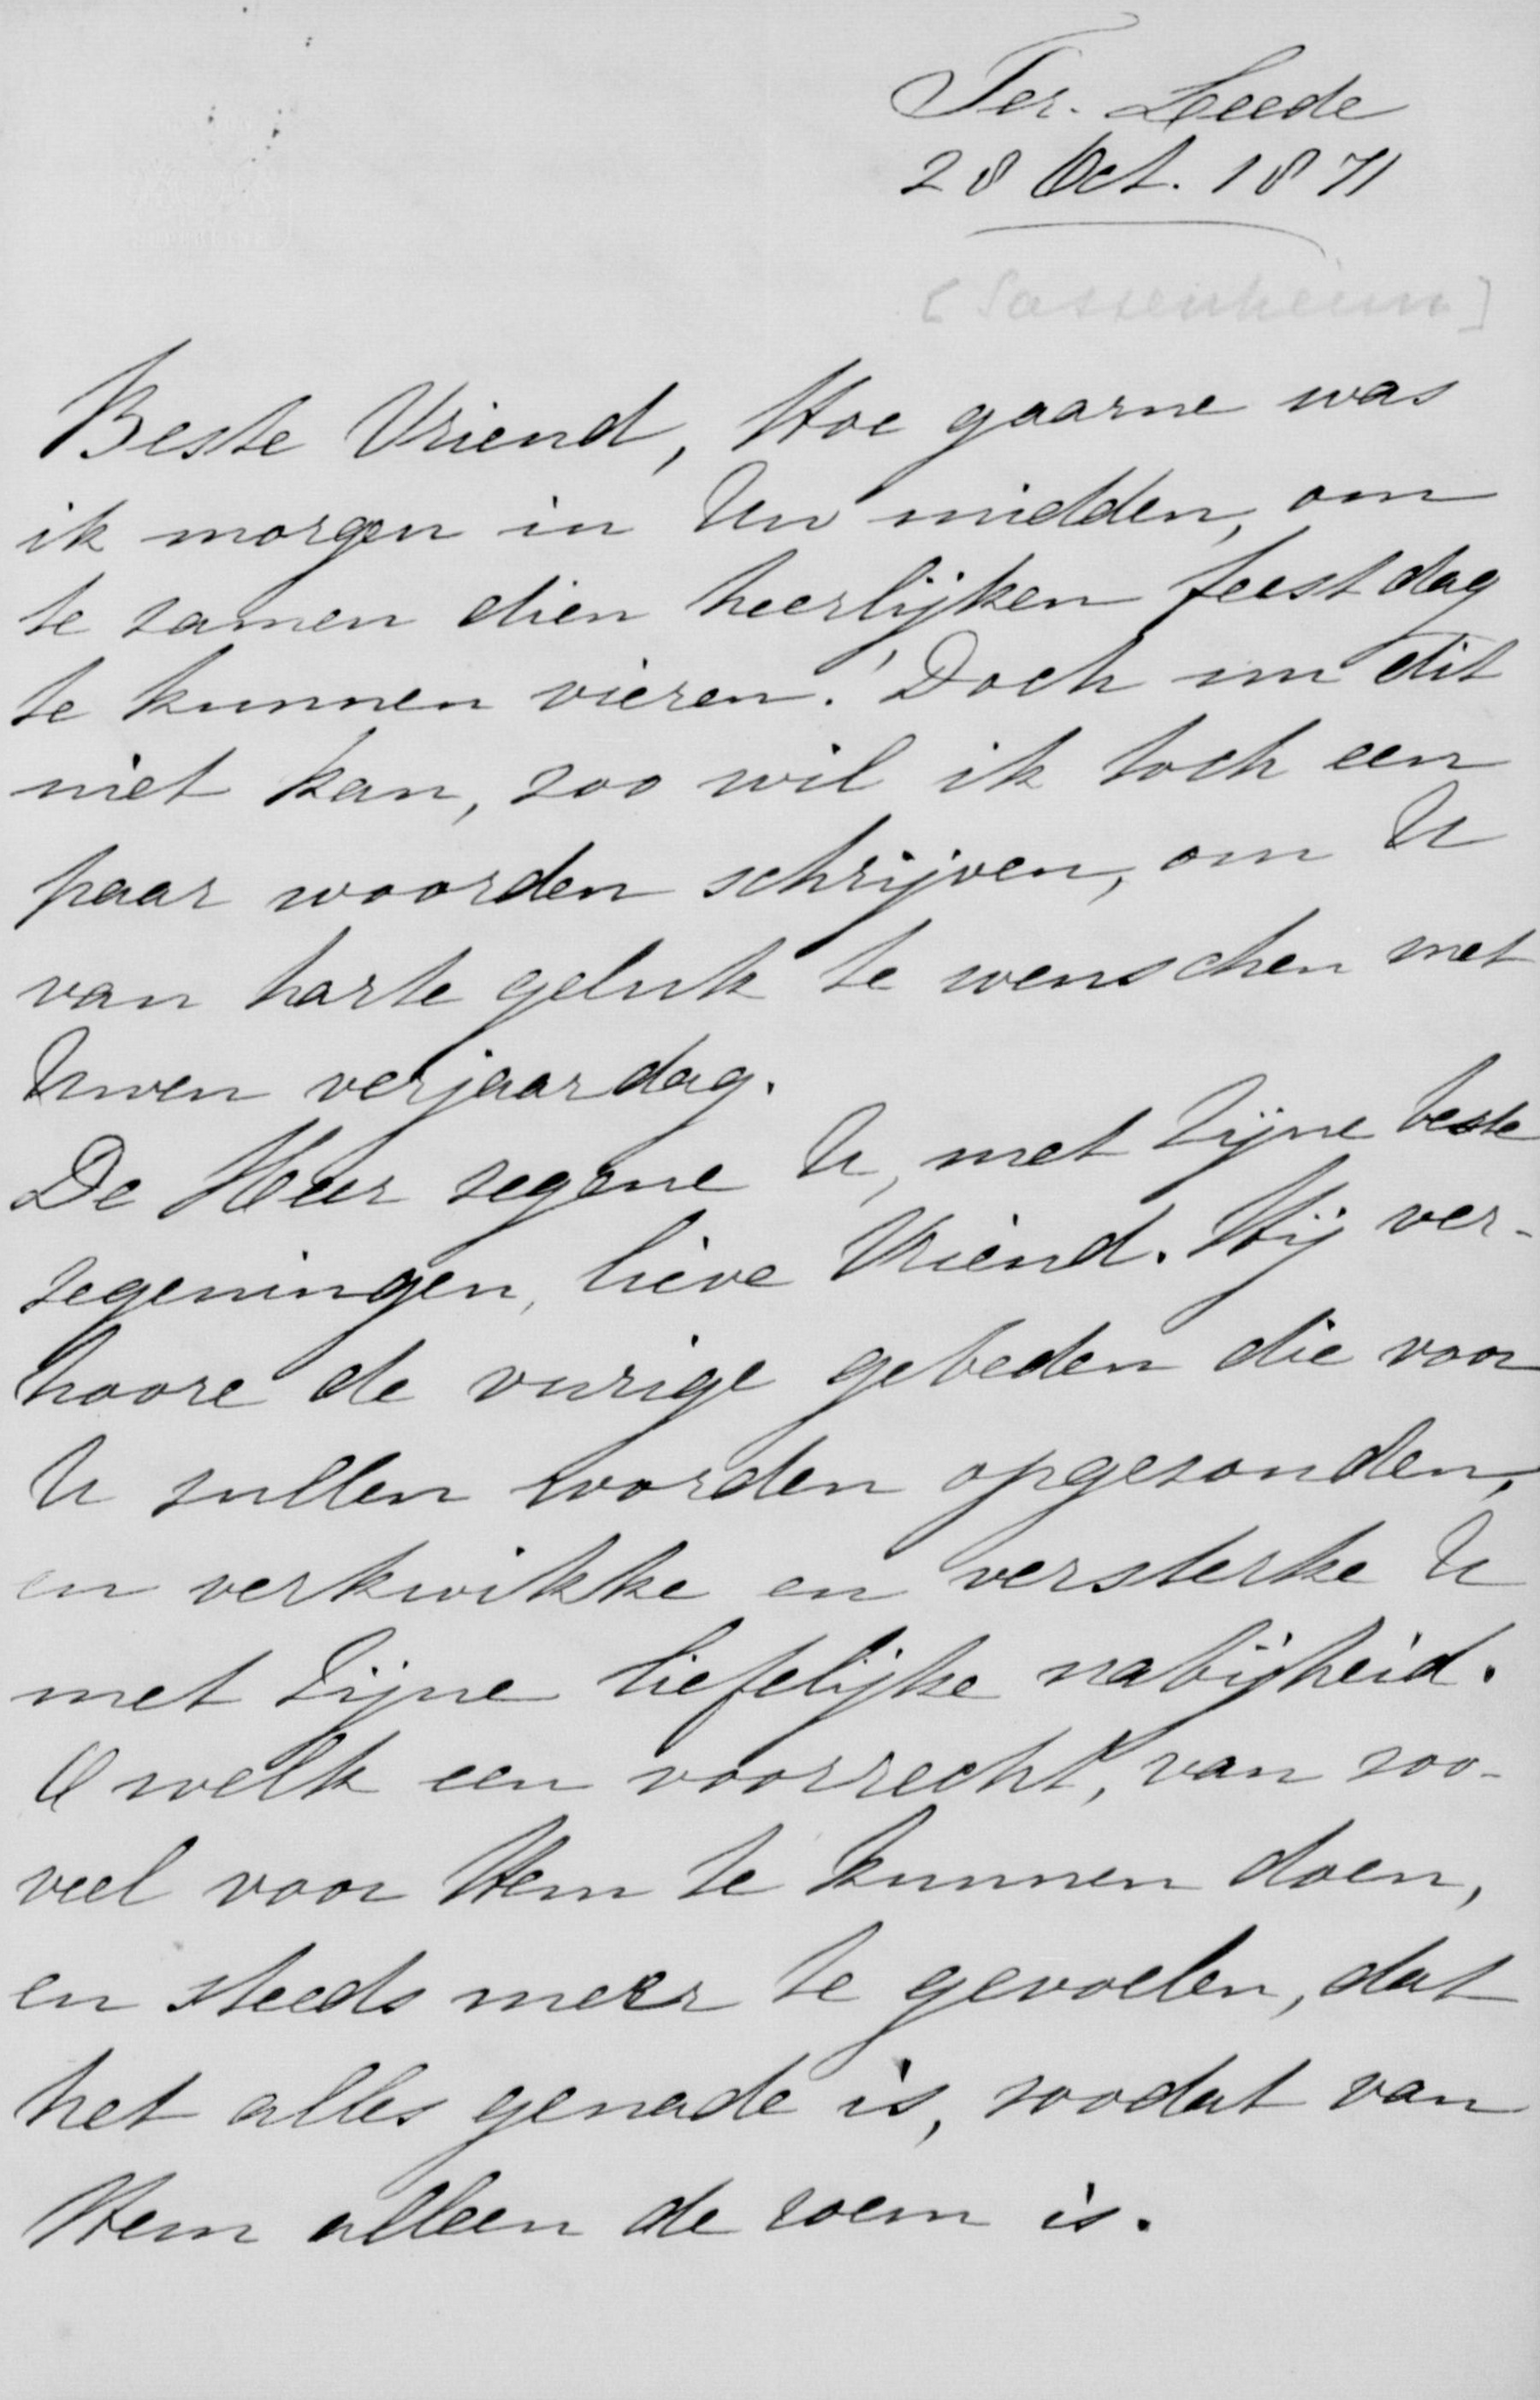 Ter. Leede
28 Oct. 1871
[Sassenheim]
Beste Vriend, Hoe gaarne was
ik morgen in Uw midden, om
te zamen dien heerlijken feestdag
te kunnen vieren! Doch nu dit
niet kan, zoo wil ik toch een
paar woorden schrijven, om U
van harte geluk te wenschen met
Uwen verjaardag.
De Heer zegene U, met Zijne beste
zegeningen, lieve Vriend. Hij ver-
hoore de vurige gebeden die voor
U zullen worden opgezonden,
en verkwikke en versterke U
met Zijne liefelijke nabijheid.
O welk een voorrecht, van zoo-
veel voor Hem te kunnen doen,
en steeds meer te gevoelen, dat
het alles genade is, zoodat van
Hem alleen de roem is.